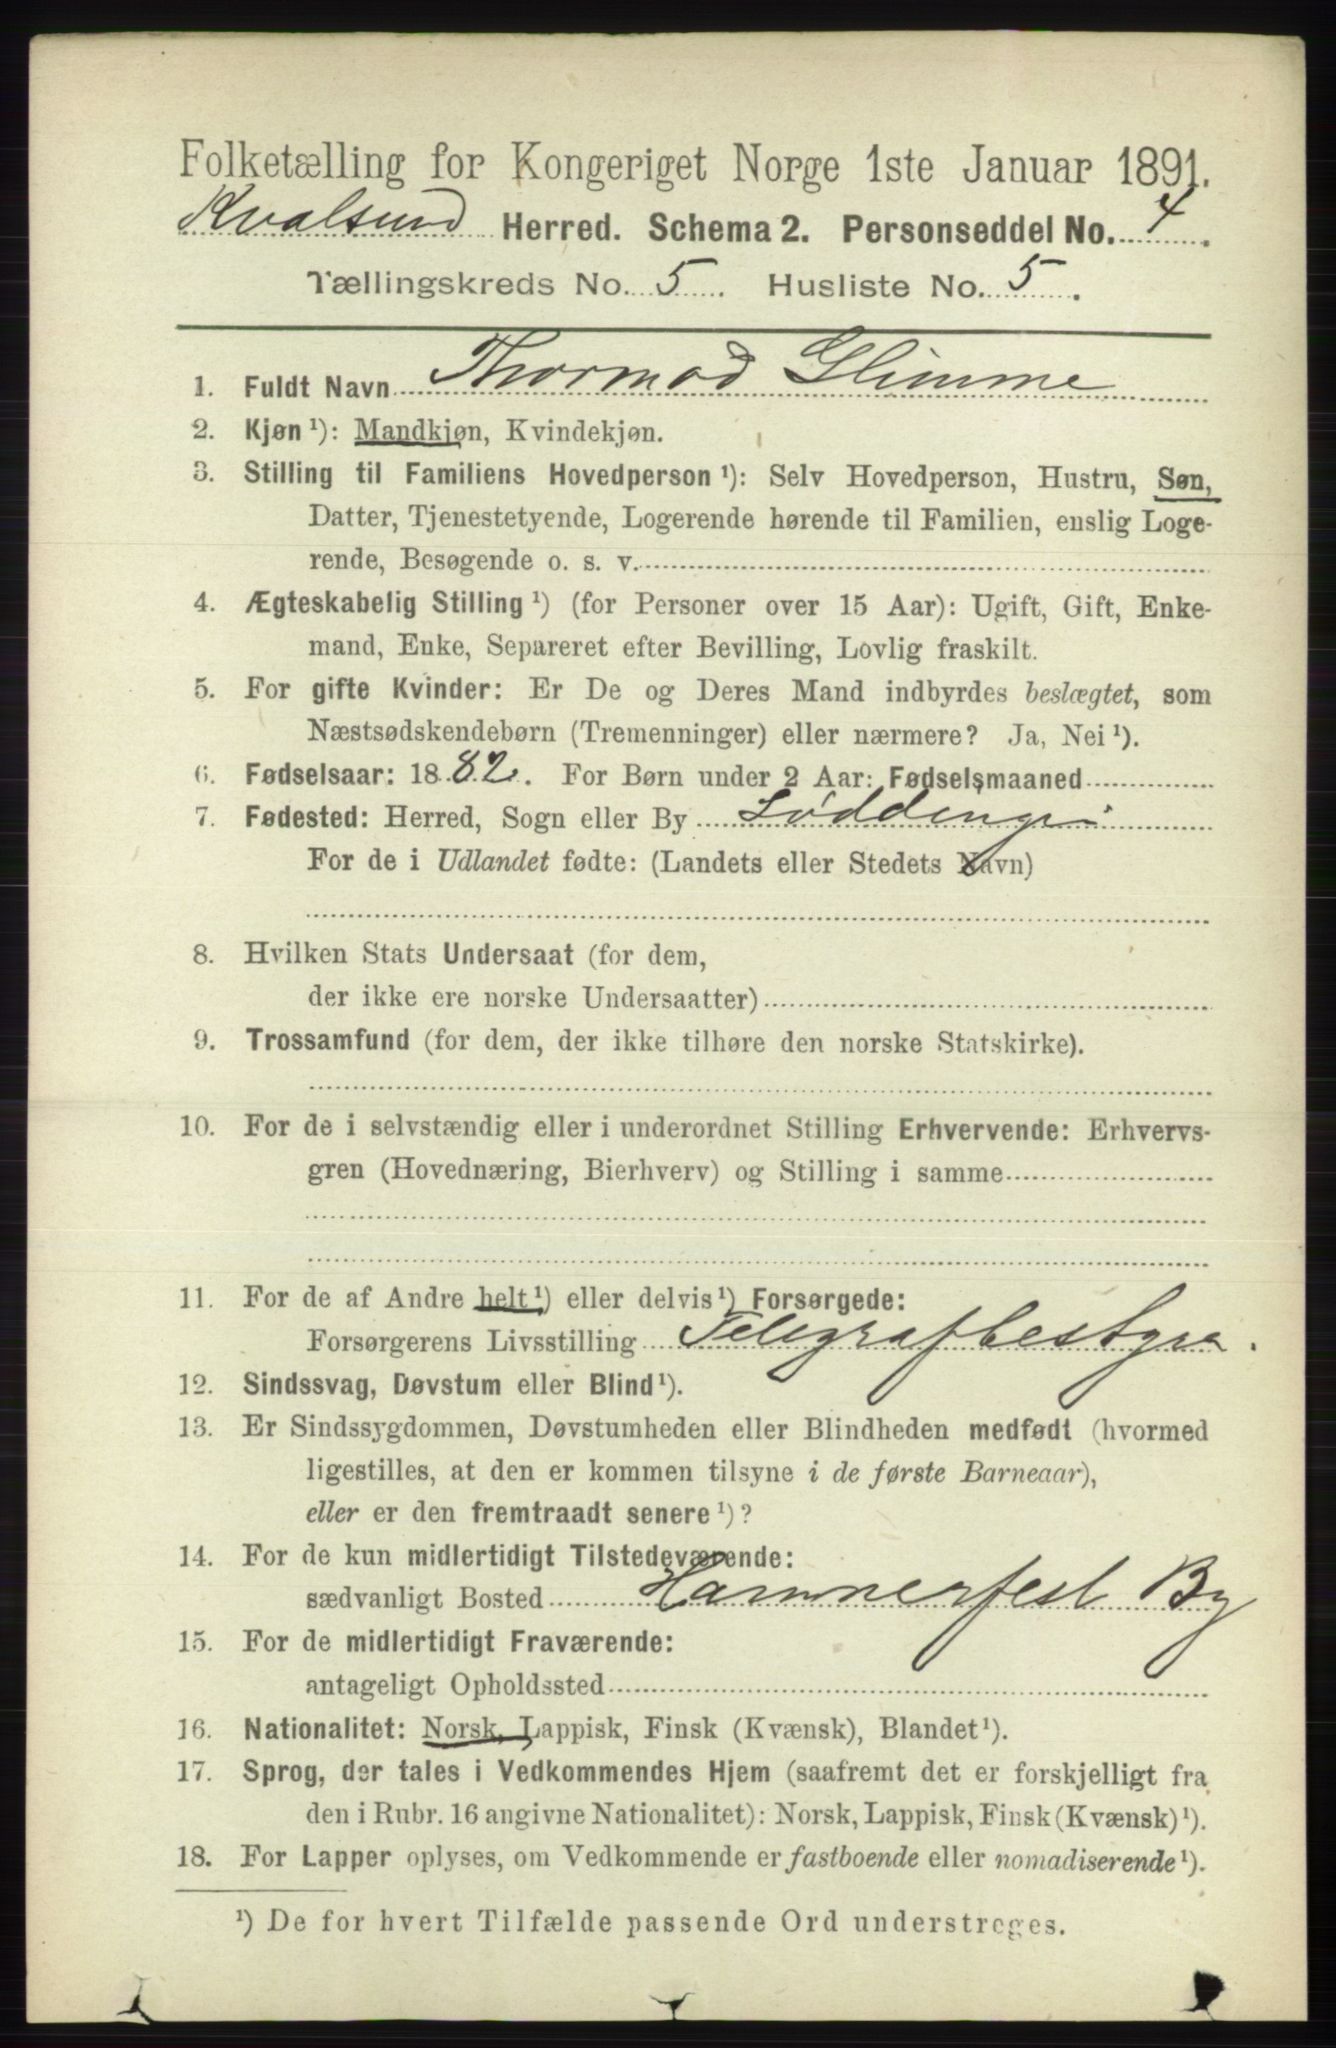 Folketælling for Kongeriget Norge 1ste Januar 1891.
Kvalsund Herred. Schema 2. Personseddel No. 4.
Tællingskreds No. 5. Husliste No. 5.
1. Fuldt Navn Thormod Glimme
2. Kjøn ¹): Mandkjøn, Kvindekjøn.
3. Stilling til Familiens Hovedperson ¹): Selv Hovedperson, Hustru, Søn,
Datter, Tjenestetyende, Logerende hørende til Familien, enslig Loge-
rende, Besøgende o. s. v.
4. Ægteskabelig Stilling ¹) (for Personer over 15 Aar): Ugift, Gift, Enke-
mand, Enke, Separeret efter Bevilling, Lovlig fraskilt.
5. For gifte Kvinder: Er De og Deres Mand indbyrdes beslægtet, som
Næstsødskendebørn (Tremenninger) eller nærmere? Ja, Nei ¹).
6. Fødselsaar: 1882. For Børn under 2 Aar: Fødselsmaaned
7. Fødested: Herred, Sogn eller By Løddengen
For de i Udlandet fødte: (Landets eller Stedets Navn)
8. Hvilken Stats Undersaat (for dem,
der ikke ere norske Undersaatter)
9. Trossamfund (for dem, der ikke tilhøre den norske Statskirke).
10. For de i selvstændig eller i underordnet Stilling Erhvervende: Erhvervs-
gren (Hovednæring, Bierhverv) og Stilling i samme
11. For de af Andre helt ¹) eller delvis ¹) Forsørgede:
Forsørgerens Livsstilling Telegrafbestyrer.
12. Sindssvag, Døvstum eller Blind ¹).
13. Er Sindssygdommen, Døvstumheden eller Blindheden medfødt (hvormed
ligestilles, at den er kommen tilsyne i de første Barneaar),
eller er den fremtraadt senere ¹)?
14. For de kun midlertidigt Tilstedeværende:
sædvanligt Bosted Hammerfest By
15. For de midlertidigt Fraværende:
antageligt Opholdssted
16. Nationalitet: Norsk, Lappisk, Finsk (Kvænsk), Blandet ¹).
17. Sprog, der tales i Vedkommendes Hjem (saafremt det er forskjelligt fra
den i Rubr. 16 angivne Nationalitet): Norsk, Lappisk, Finsk (Kvænsk) ¹).
18. For Lapper oplyses, om Vedkommende er fastboende eller nomadiserende ¹).
¹) De for hvert Tilfælde passende Ord understreges.